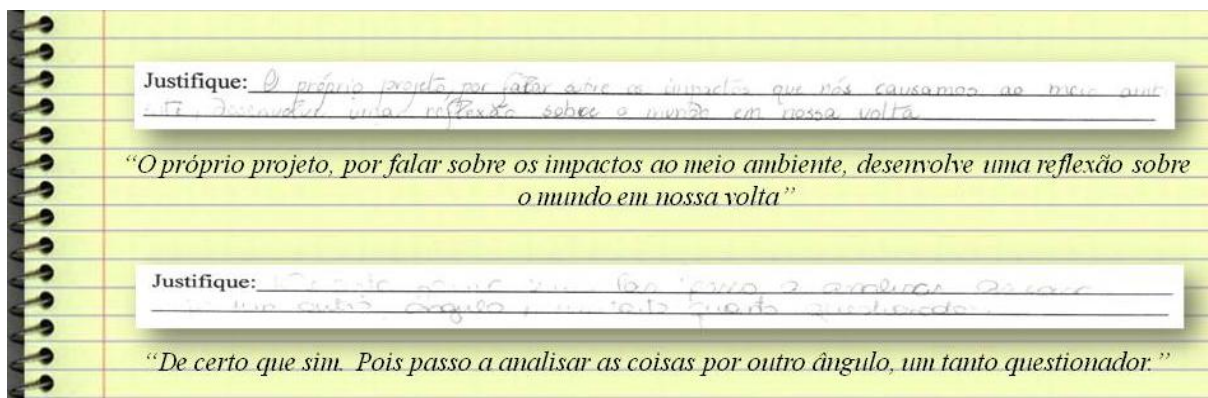 Justifique: O próprio projeto, por falar sobre os impactos que nós causamos ao meio ambi
ente, desenvolve uma reflexão sobre o mundo em nossa volta
“O próprio projeto, por falar sobre os impactos ao meio ambiente, desenvolve uma reflexão sobre
o mundo em nossa volta”
Justifique: passo a analisar as
um outro ângulo, um tanto
“De certo que sim. Pois passo a analisar as coisas por outro ângulo, um tanto questionador.”